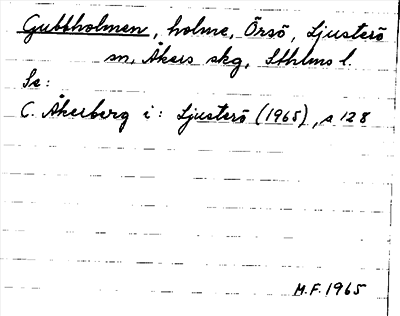 Gubbholmen, holme, Örsö, Ljusterö
sn, Åkers skg, Sthlms l.
Se:
C. Åkerberg i: Ljusterö (1965), s 128
M.F. 1965